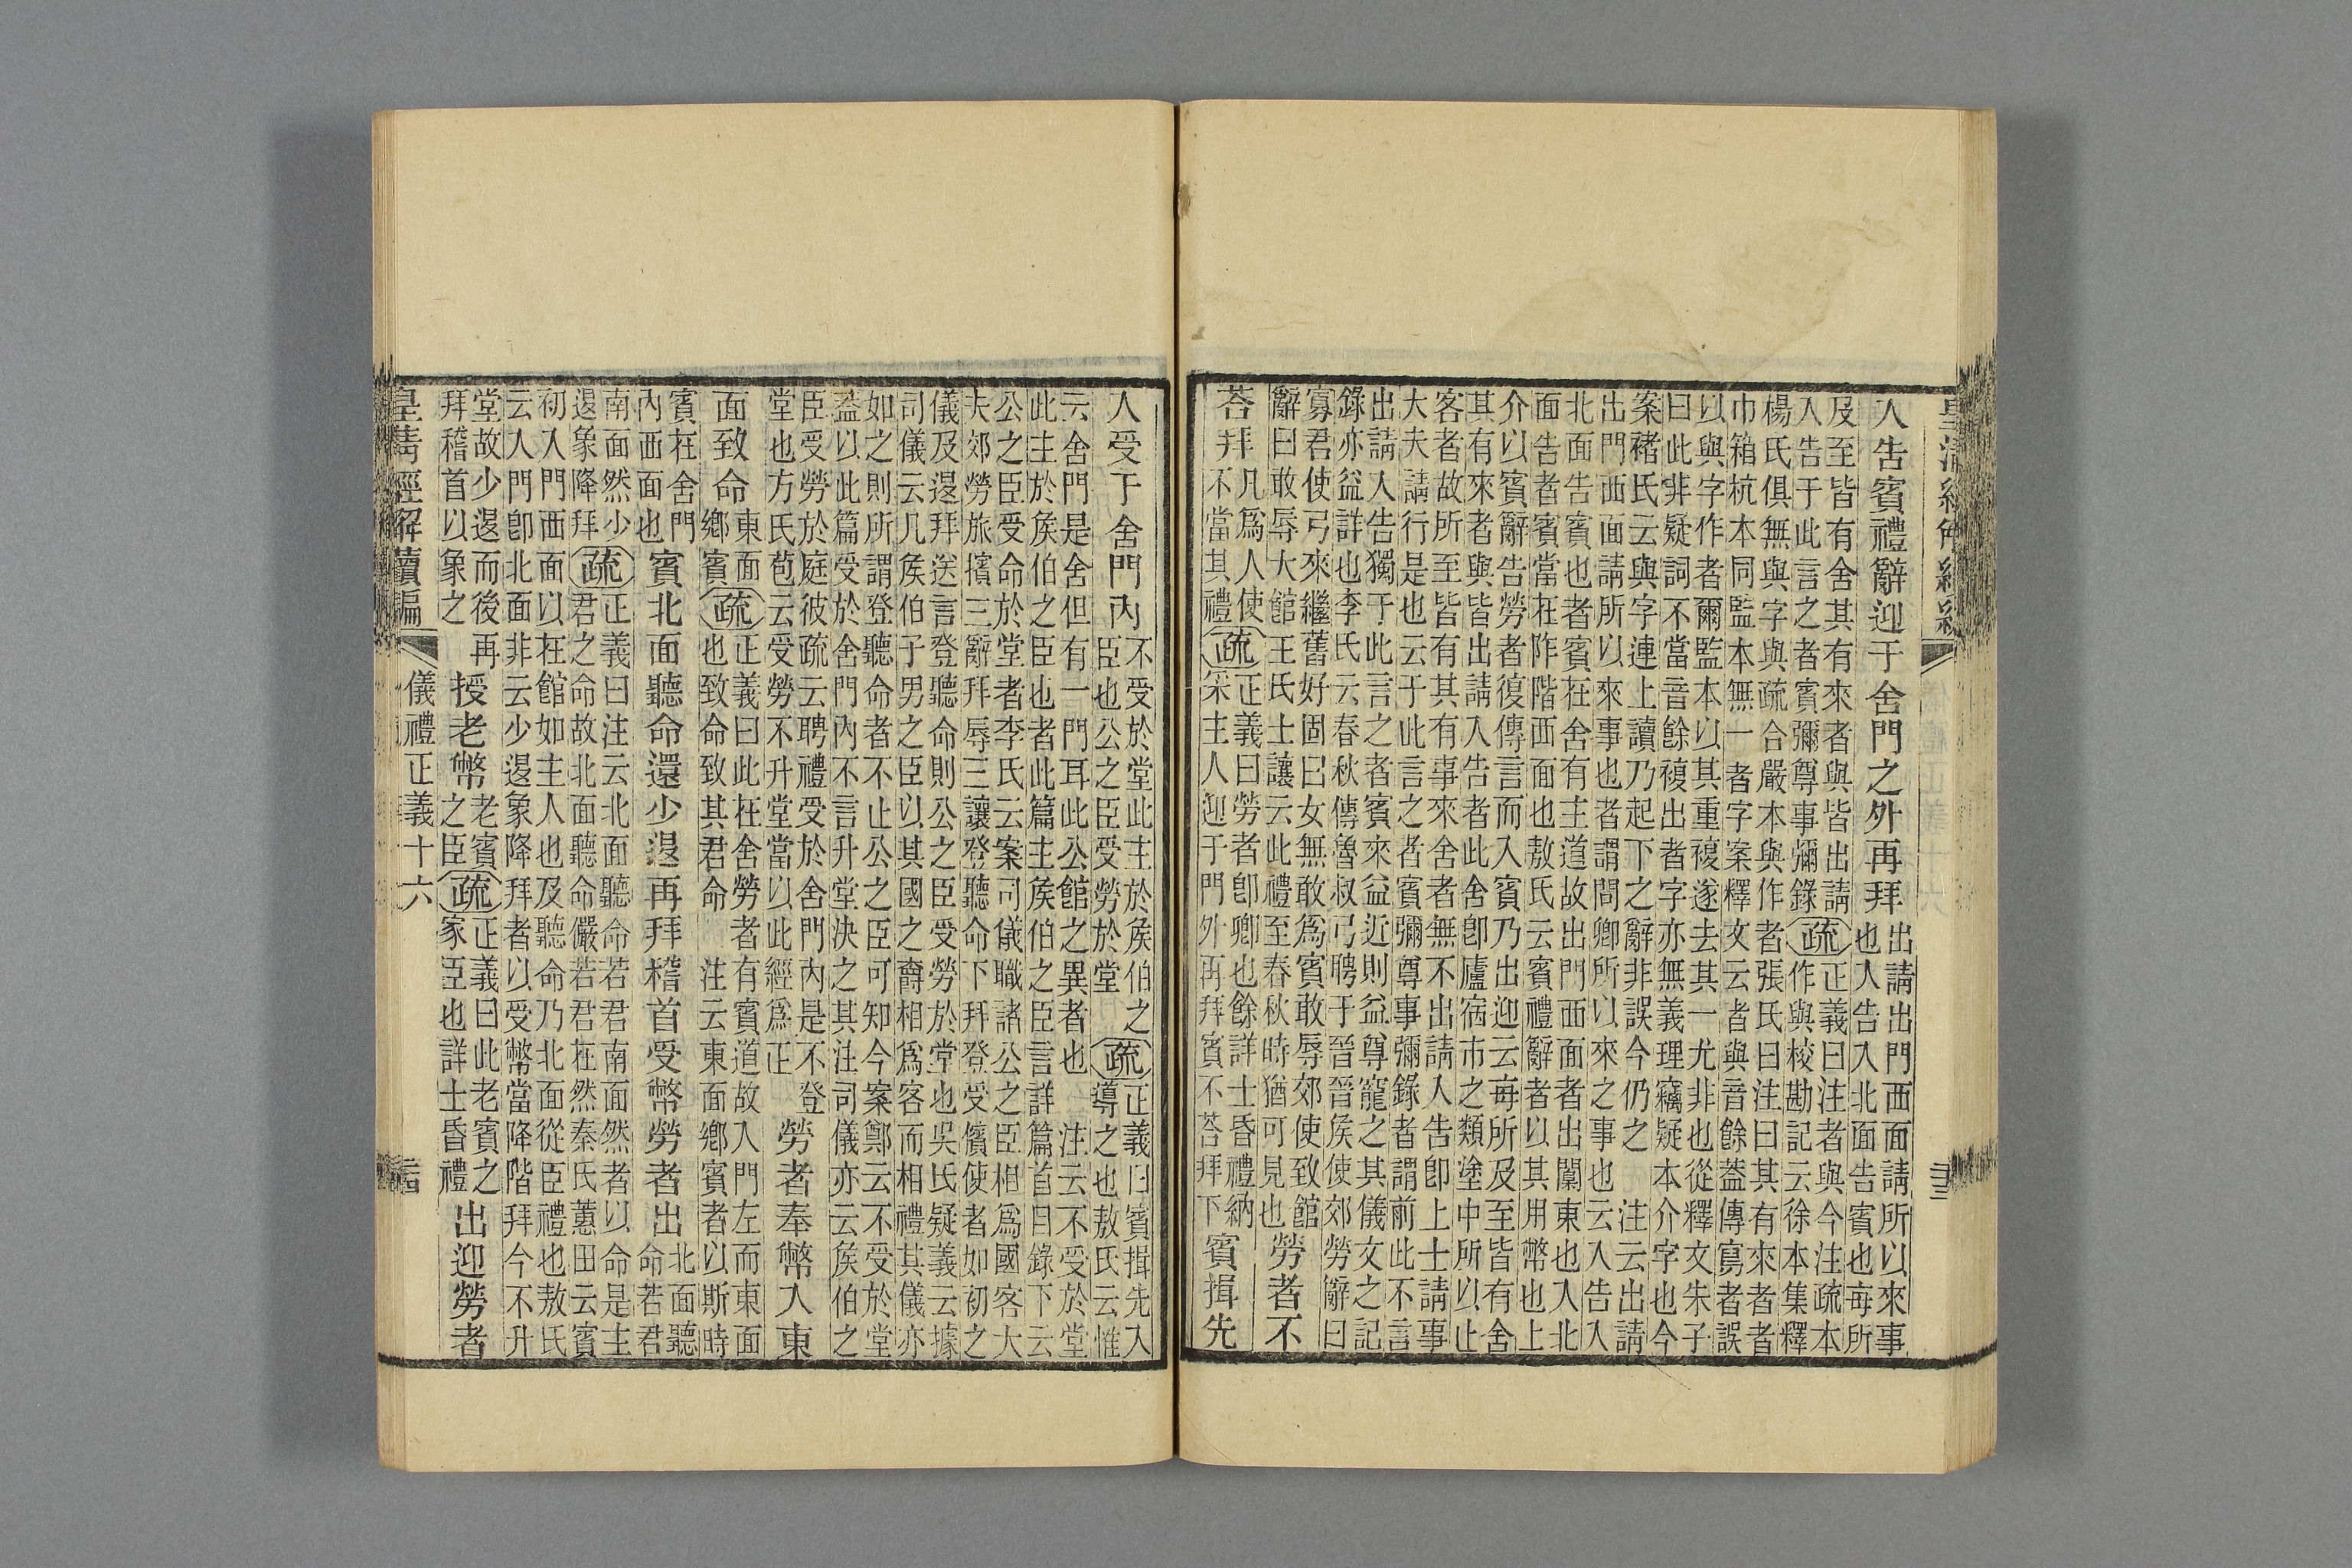 皇清經解續編
人告賓禮辭迎于舍門之外再拜
出請出門西面請所以來事
也入告入北面告賓也每所
及至皆有舍其有來者與皆出請
入告于此言之者賓彌尊事彌錄
疏
正義曰注者與今注疏本
作與校勘記云徐本集釋
楊氏俱無與字與疏合嚴本與作者張氏曰注曰其有來者者
巾箱杭本同監本無一者字案釋文云者與音餘蓋傳寫者誤
以與字作者爾監本以其重複遂去其一尤非也從釋文朱子
曰此非疑詞不當音餘複出者字亦無義理竊疑本介字也今
案褚氏云與字連上讀乃起下之辭非誤今仍之 注云出請
出門西面請所以來事也者謂問卿所以來之事也云入告入
北面告賓也者賓在舍有主道故出門西面者出闑東也入北
面告者賓當在阼階西面也敖氏云賓禮辭者以其用幣也上
介以賓辭告勞者復傳言而入賓乃出迎云每所及至皆有舍
其有來者與皆出請入告者此舍卽廬宿市之類塗中所以止
客者故所至皆有其有事來舍者無不出請入告卽上士請事
大夫請行是也云于此言之者賓彌尊事彌錄者謂前此不言
出請入告獨于此言之者賓來益近則益尊寵之其儀文之記
錄亦益詳也李氏云春秋傳魯叔弓聘于晉晉矦使郊勞辭曰
寡君使弓來繼舊好固曰女無敢爲賓敢辱郊使致館
辭曰敢辱大館王氏士讓云此禮至春秋時猶可見也
勞者不
荅拜
凡爲人使
不當其禮
疏
正義曰勞者卽卿也餘詳士昏禮納
采主人迎于門外再拜賓不荅拜下
賓揖先
人受于舍門內
不受於堂此主於矦伯之
臣也公之臣受勞於堂
疏
正義曰賓揖先入
導之也敖氏云惟
云舍門是舍但有一門耳此公館之異者也 注云不受於堂
此主於矦伯之臣也者此篇主矦伯之臣言詳篇首目錄下云
公之臣受命於堂者李氏云案司儀職諸公之臣相爲國客大
夫郊勞旅擯三辭拜辱三讓登聽命下拜登受儐使者如初之
儀及退拜送言登聽命則公之臣受勞於堂也吳氏疑義云據
司儀云凡矦伯子男之臣以其國之爵相爲客而相禮其儀亦
如之則所謂登聽命者不止公之臣可知今案鄭云不受於堂
蓋以此篇受於舍門內不言升堂決之其注司儀亦云矦伯之
臣受勞於庭彼疏云聘禮受於舍門內是不登
堂也方氏苞云受勞不升堂當以此經爲正
勞者奉幣入東
面致命
東面
鄉賓
疏
正義曰此在舍勞者有賓道故入門左而東面
也致命致其君命 注云東面鄉賓者以斯時
賓在舍門
內西面也
賓北面聽命還少退再拜稽首受幣勞者出
北面聽
命若君
南面然少
退象降拜
疏
正義曰注云北面聽命若君南面然者以命是主
君之命故北面聽命儼若君在然秦氏蕙田云賓
初入門西面以在館如主人也及聽命乃北面從臣禮也敖氏
云入門卽北面非云少退象降拜者以受幣當降階拜今不升
堂故少退而後再
拜稽首以象之
授老幣
老賓
之臣
疏
正義曰此老賓之
家臣也詳士昏禮
出迎勞者
皇淸經解續編
儀禮正義十六